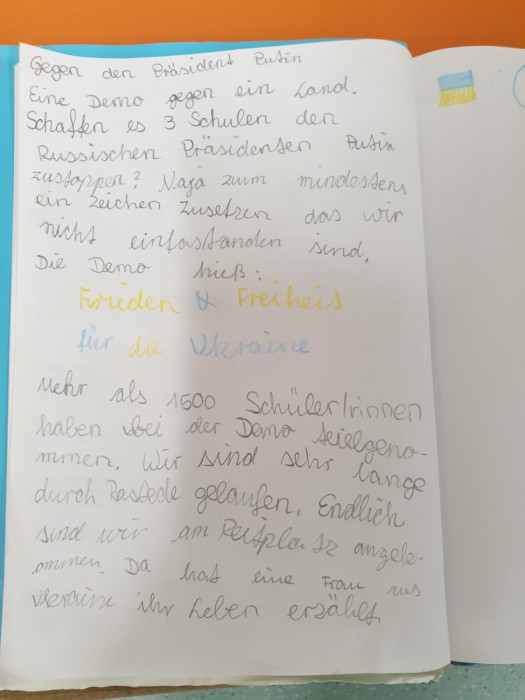 Gegen den Präsident Putin
Eine Demo gegen ein Land.
Schaffen es 3 Schulen den
Russischen Präsidenten Putin
zustoppen? Naja zuum mindestens
ein zeichen zusetzen das wir
nicht einfastanden sind.
Die Demo hieß:
Frieden & Freiheit
für die Ukraine
Mehr als 1500 Schüler/rinnen
haben bei der Demo teielgeno-
mmen. Wir sind sehr lange
durch Rastede gelaufen. Endlich
sind wir am Reitplatz angek-
ommen. Da hat eine Frau aus
Ukraine ihr Leben erzählt